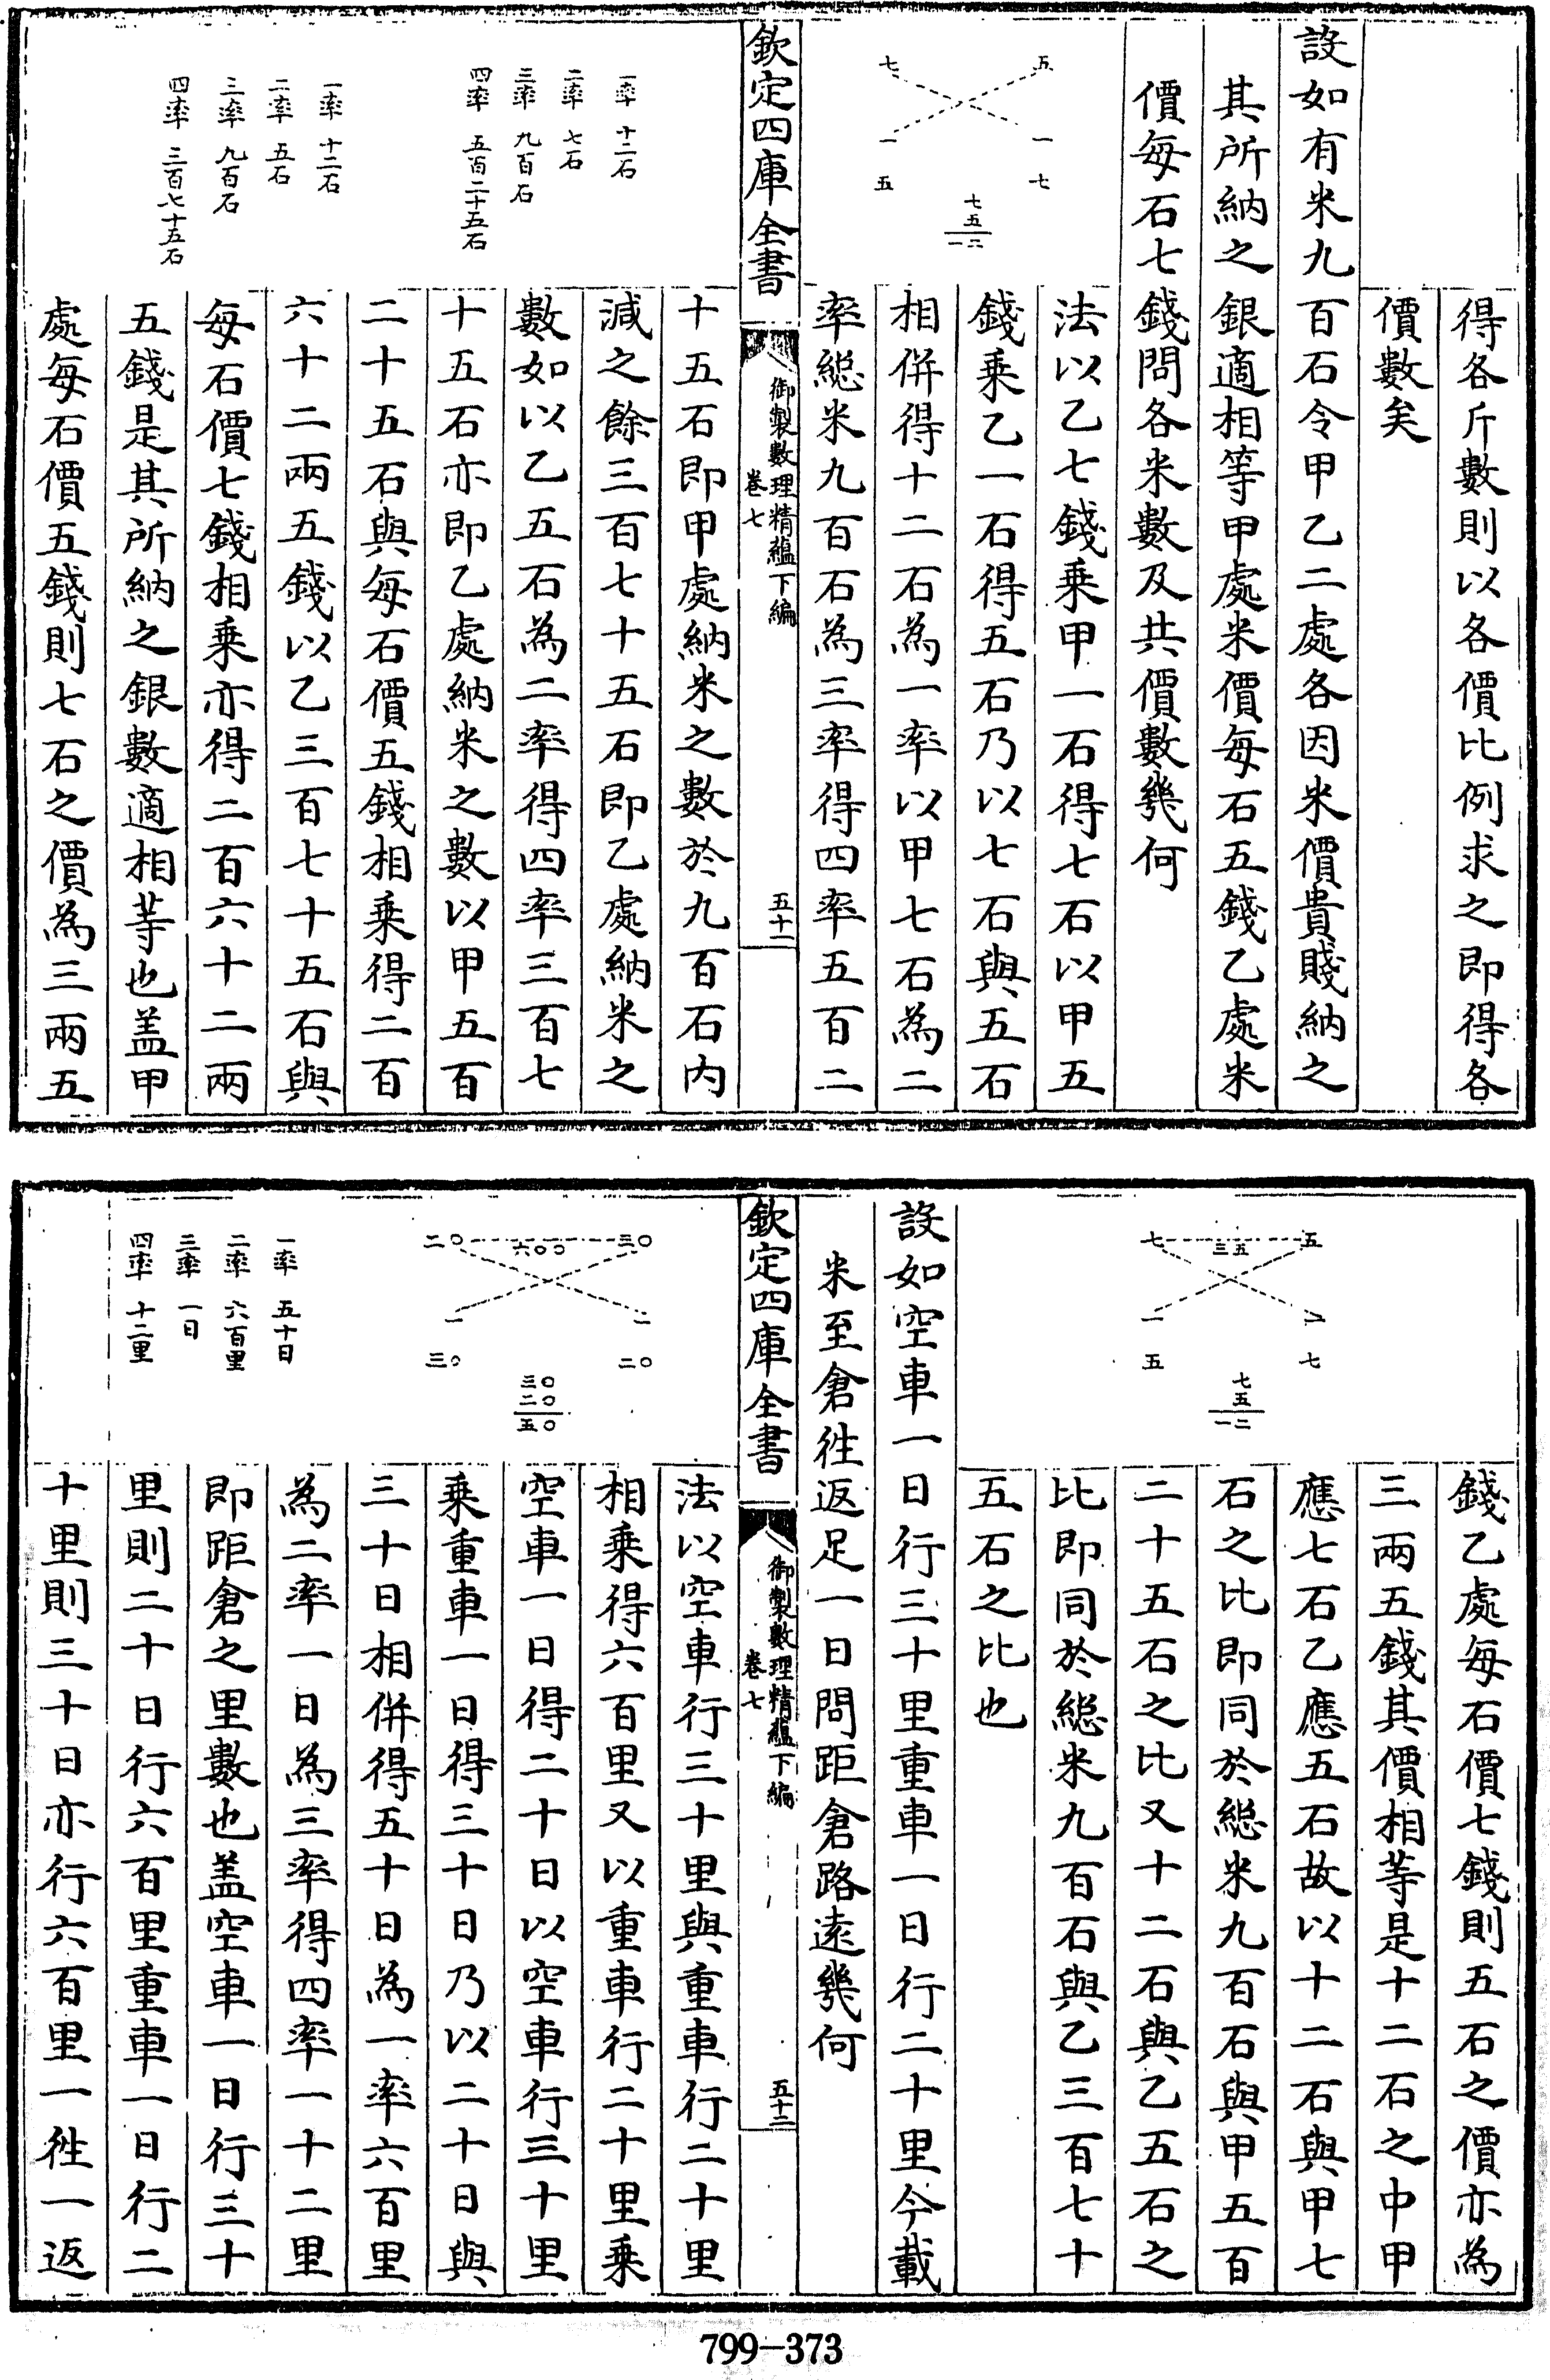 得各斤數則以各價比例求之即得各
價數矣
設如有米九百石令甲乙二處各因米價貴賤納之
其所納之銀適相等甲處米價每石五錢乙處米
價每石七錢問各米數及共價數幾何
五 七
一 一
七 五
七
五
一二
法以乙七錢乘甲一石得七石以甲五
錢乘乙一石得五石乃以七石與五石
相併得十二石為一率以甲七石為二
率總米九百石為三率得四率五百二
欽定四庫全書
御製數理精蘊下編
卷七
五十一
一率 十二石
二率 七石
三率 九百石
四率 五百二十五石
一率 十二石
二率 五石
三率 九百石
四率 三百七十五石
十五石即甲處納米之數於九百石内
減之餘三百七十五石即乙處納米之
數如以乙五石為二率得四率三百七
十五石亦即乙處納米之數以甲五百
二十五石與每石價五錢相乘得二百
六十二兩五錢以乙三百七十五石與
每石價七錢相乘亦得二百六十二兩
五錢是其所納之銀數適相等也盖甲
處每石價五錢則七石之價為三兩五
五 三五 七
一 一
七 五
七
五
一二
錢乙處每石價七錢則五石之價亦為
三兩五錢其價相等是十二石之中甲
應七石乙應五石故以十二石與甲七
石之比即同於總米九百石與甲五百
二十五石之比又十二石與乙五石之
比即同於總米九百石與乙三百七十
五石之比也
設如空車一日行三十里重車一日行二十里今載
米至倉徃返足一日問距倉路遠幾何
欽定四庫全書
御製數理精蘊下編
卷七
五十二
三〇 六〇〇 二〇
一 一
二〇 三〇
三〇
二〇
五〇
一率 五十日
二率 六百里
三率 一日
四率 十二里
法以空車行三十里與重車行二十里
相乘得六百里又以重車行二十里乘
空車一日得二十日以空車行三十里
乘重車一日得三十日乃以二十日與
三十日相併得五十日為一率六百里
為二率一日為三率得四率一十二里
即距倉之里數也盖空車一日行三十
里則二十日行六百里重車一日行二
十里則三十日亦行六百里一徃一返
799—373